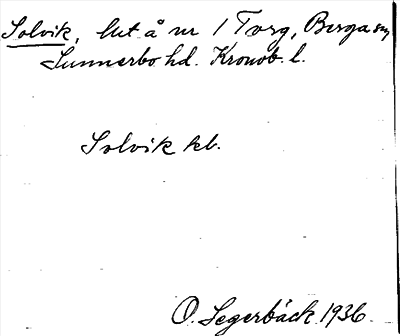 Solvik, lht å nr 1 Torg, Berga sn,
Sunnerbo hd. Kronob. l.
Solvik kb.
O. Segerbäck 1936.